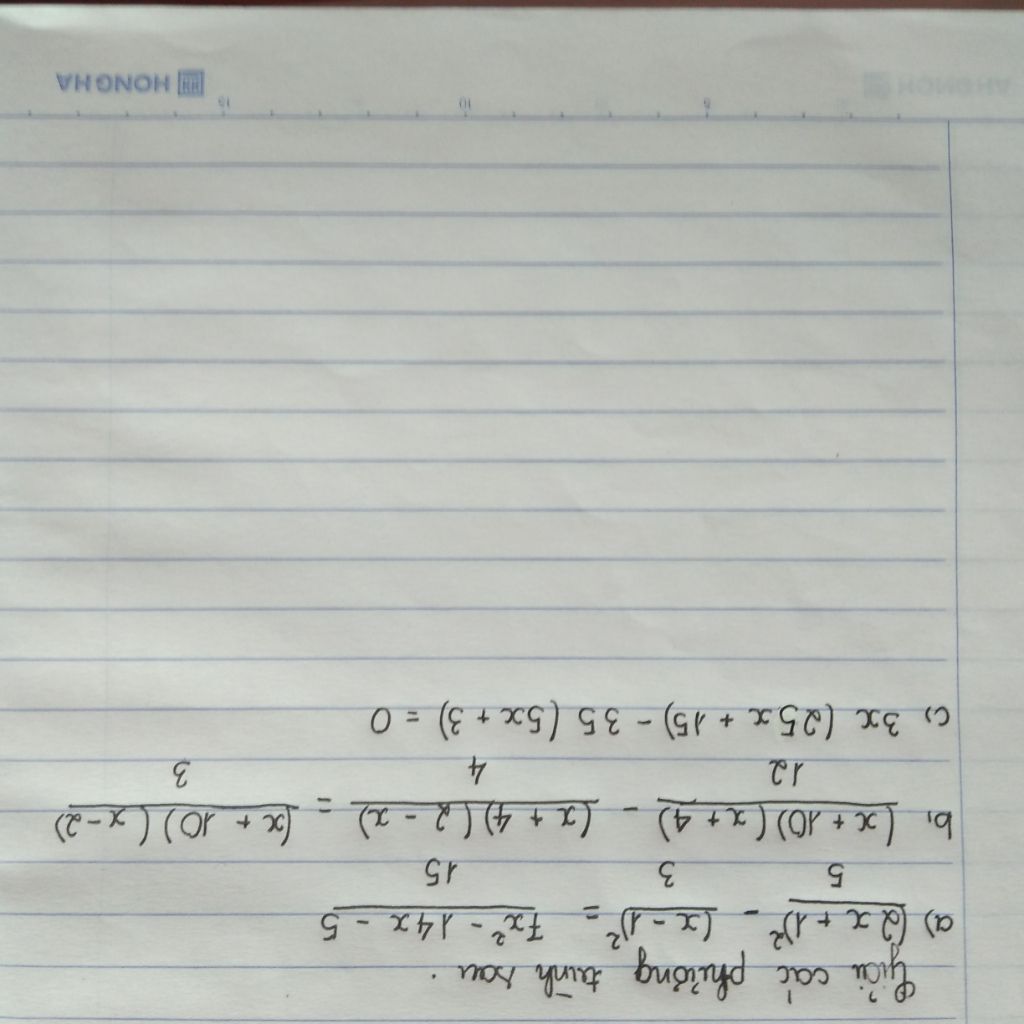 Giải các phương trình sau :
a) (2x + 1)²/5 - (x - 1)²/3 = (7x² - 14x - 5)/15
b, (x + 10)(x + 4)/12 - (x + 4)(2 - x)/4 = (x + 10)(x - 2)/3
c, 3x (25x + 15) - 35 (5x + 3) = 0
5 10 15
HONG HA